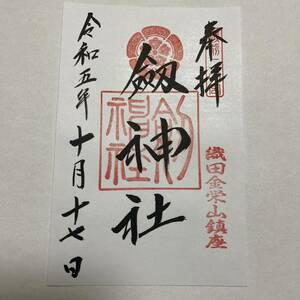 奉拝
織田金栄山鎮座
劔神社
劔神社
令和五年十月十七日